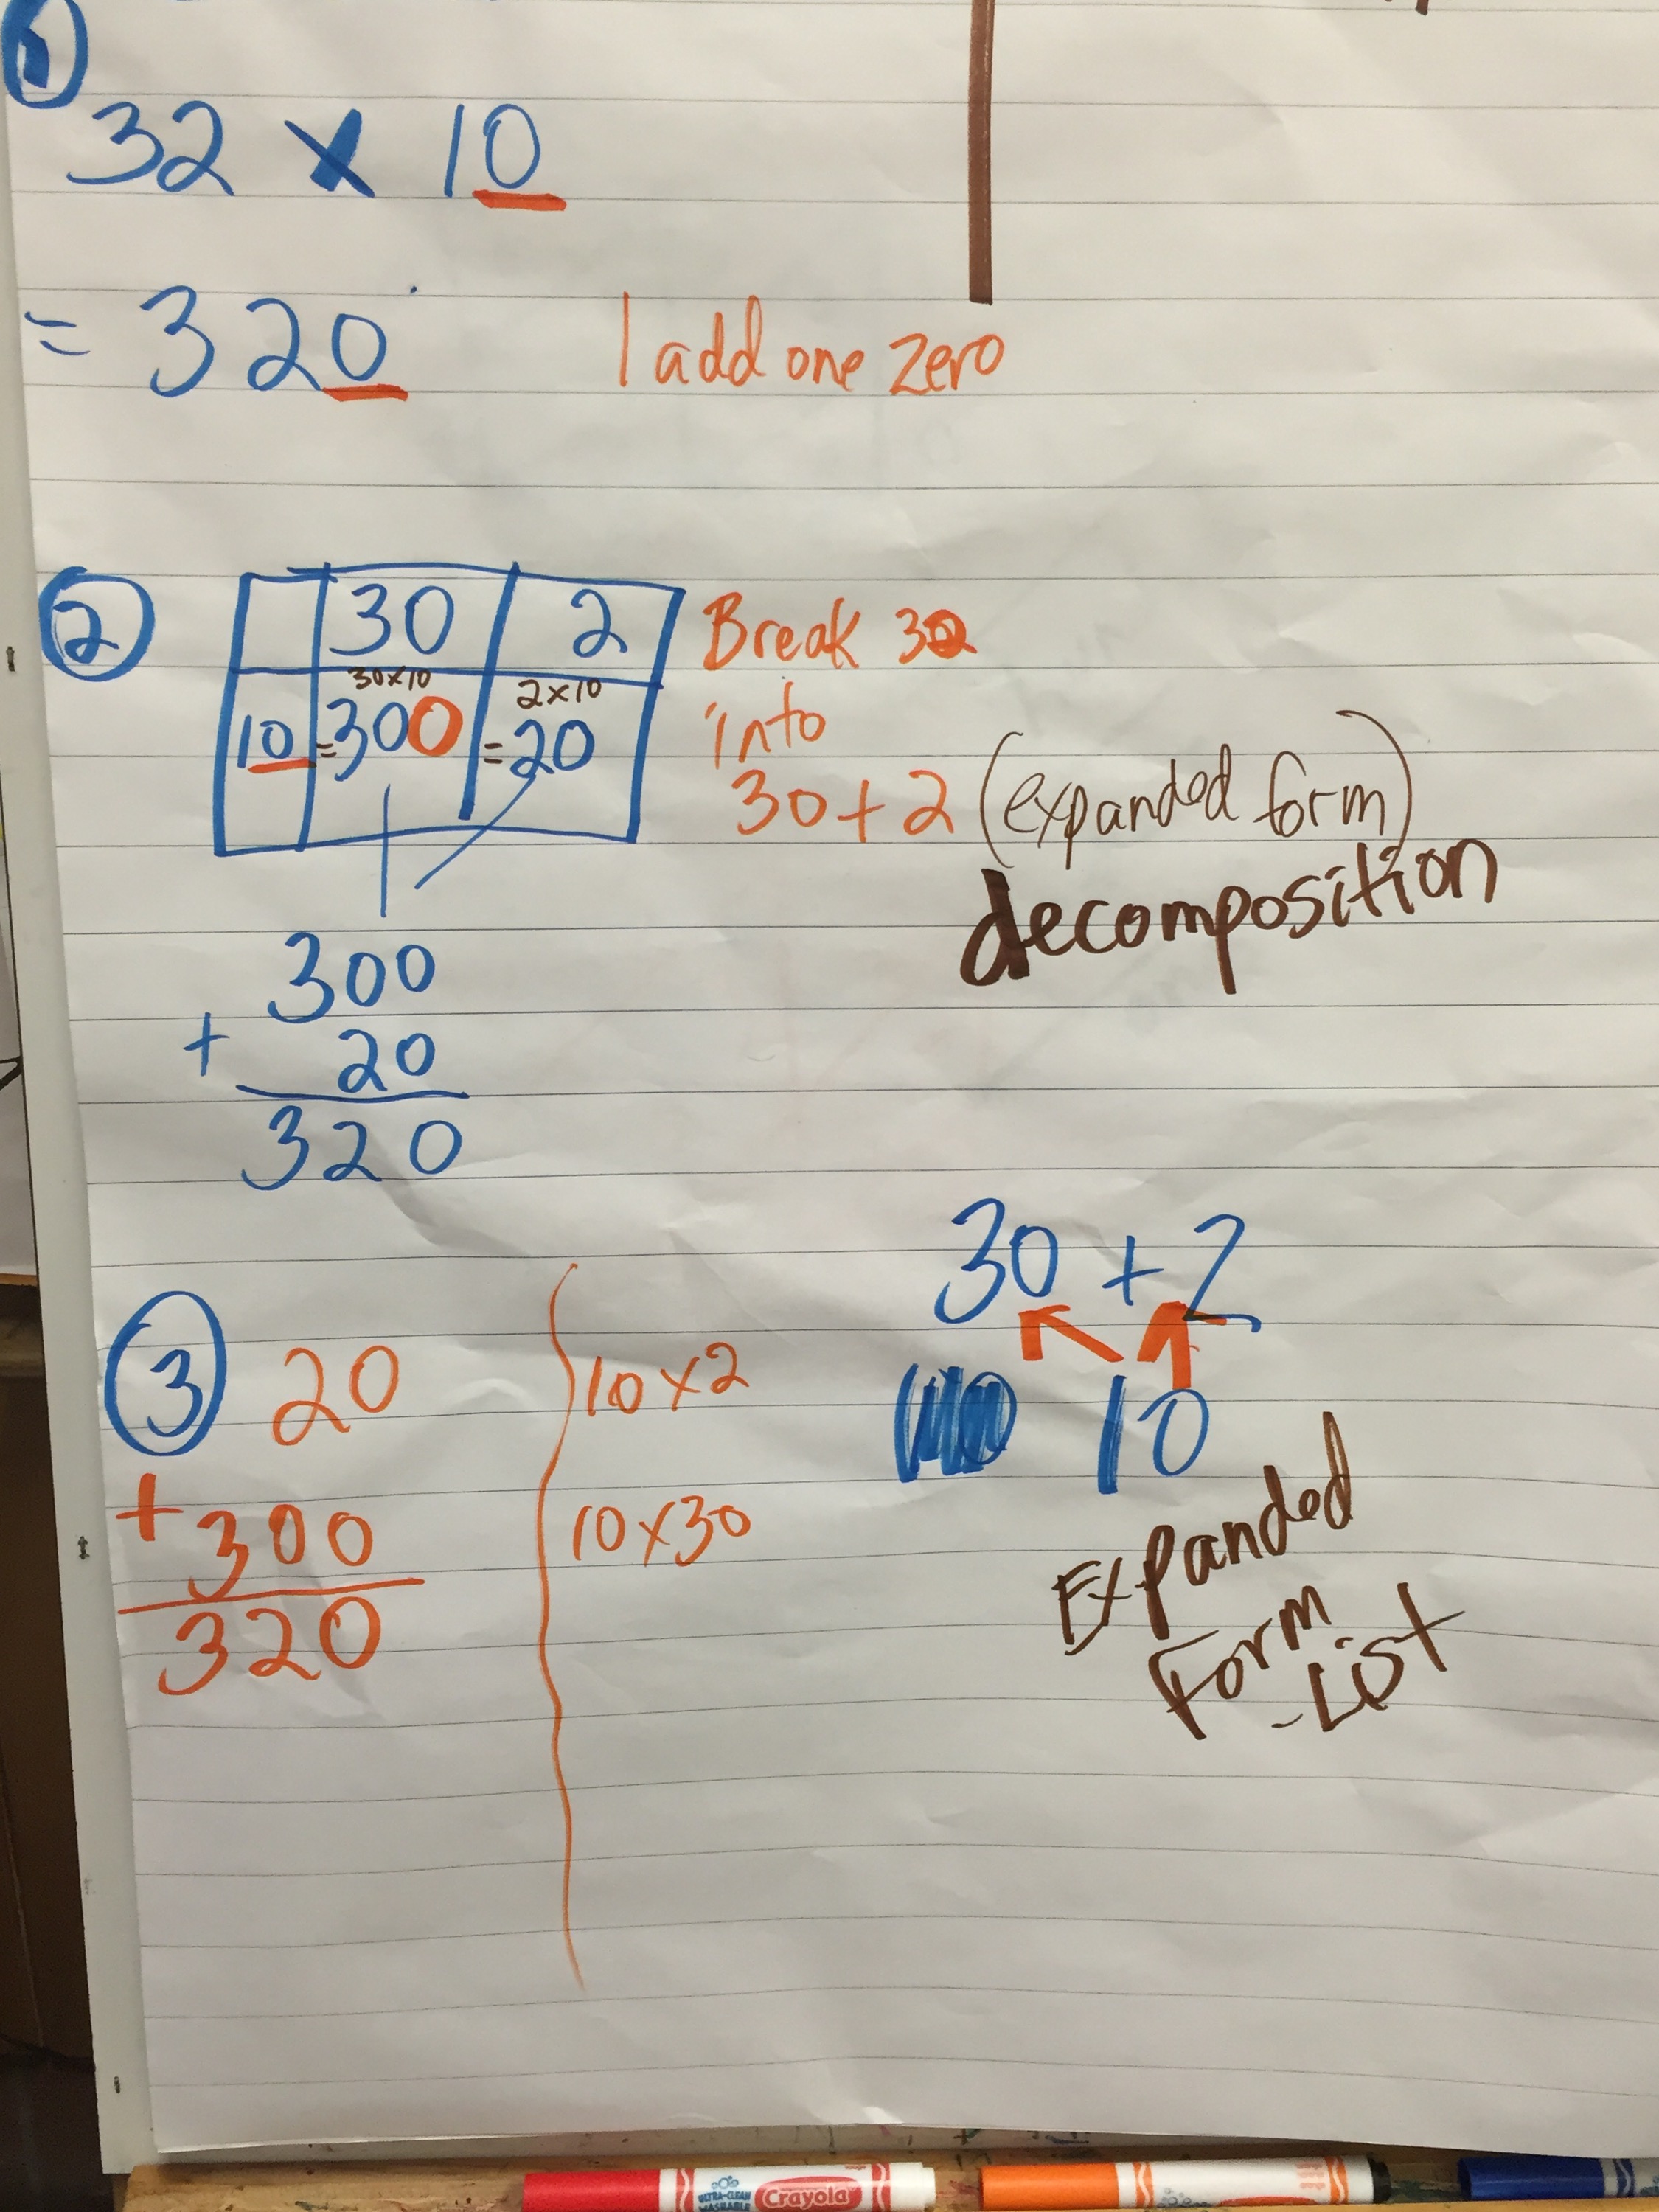 1
32 x 10
= 320
I add one zero
2
30 2
30x10 2x10
10 =300 =20
Break 32
into
30+2 (expanded form)
decomposition
300
+ 20
320
3
20
+ 300
320
10 x 2
10 x 30
30 + 2
10
Expanded
Form
-List
ULTRA-CLEAN
WASHABLE
Crayola